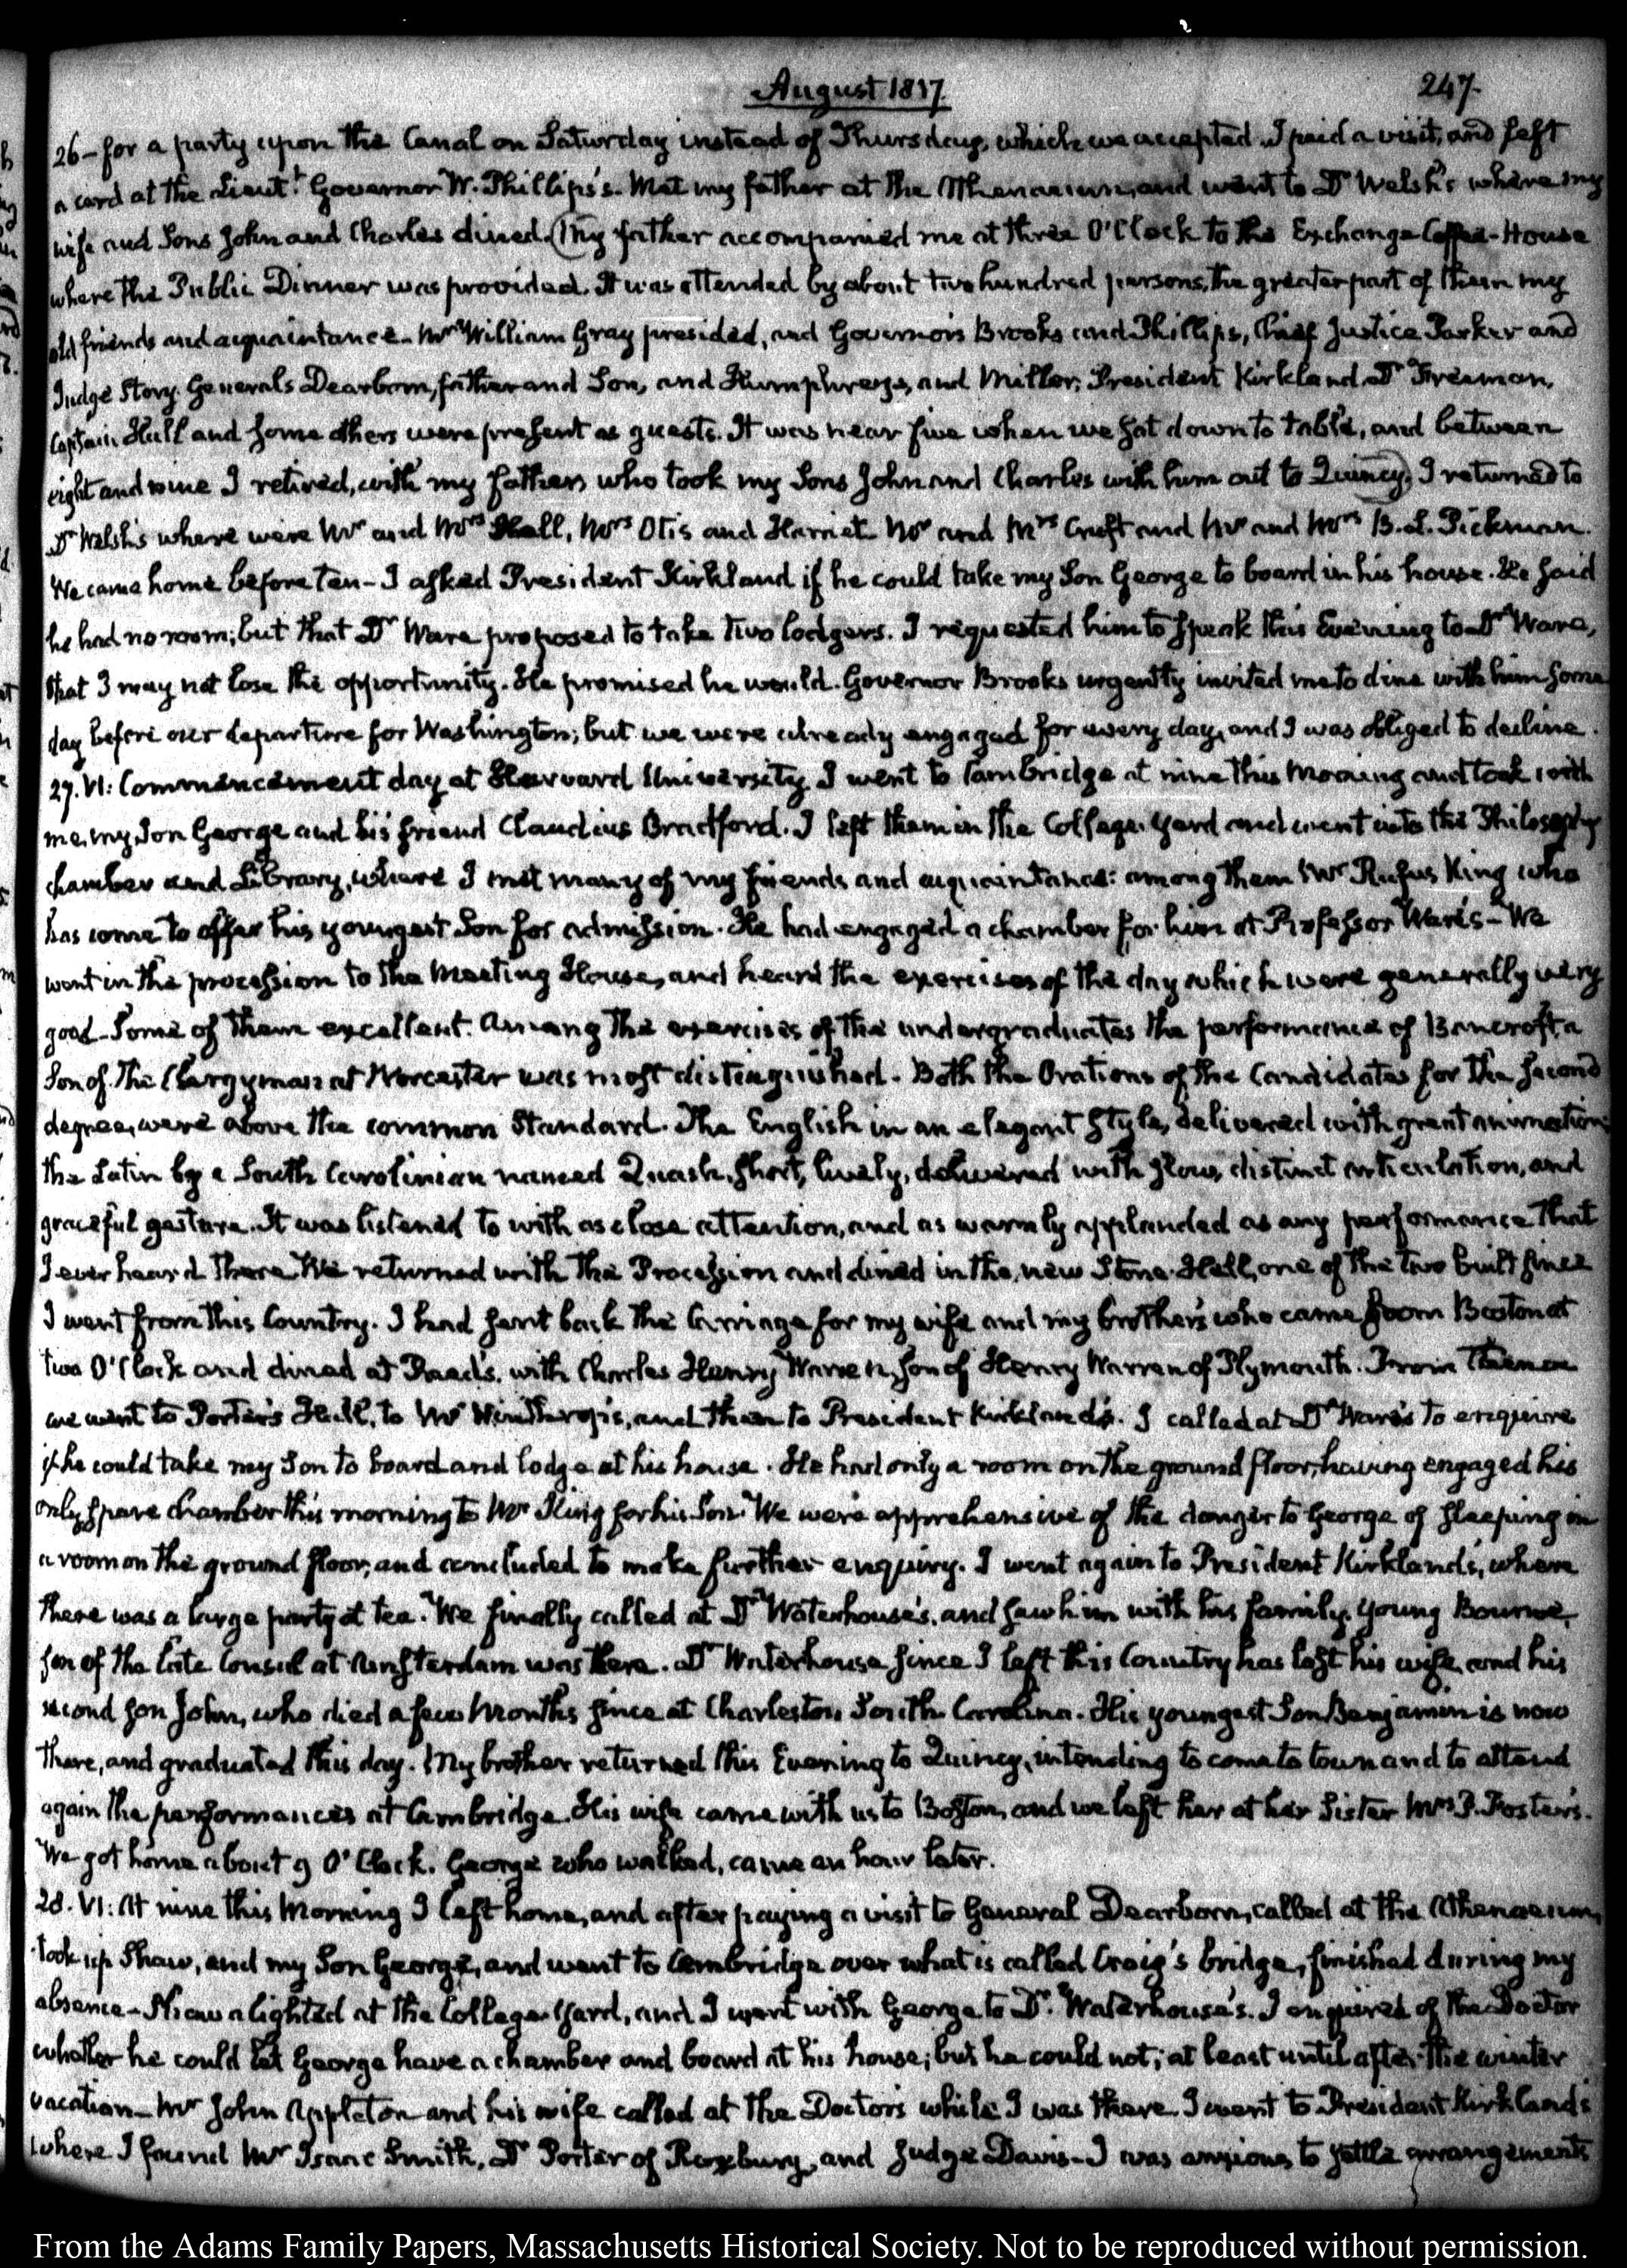 August 1817.
247.
26 – for a party upon the Canal on Saturday instead of Thursday, which we accepted. I paid a visit, and left
a card at the Lieutt. Governor W. Phillips's. Met my father at the Athenaeum, and went to Dr Welsh's where my
wife and Sons John and Charles dined. (My father accompanied me at three O'Clock to the Exchange Coffee-House
where the Public Dinner was provided. It was attended by about two hundred persons, the greater part of them my
old friends and acquaintance – Mr William Gray presided, and Governors Brooks and Phillips, Chief Justice Parker and
Judge Story. Generals Dearborn, father and Son, and Humphreys, and Miller, President Kirkland, Dr Freeman,
Captain Hull and some others were present as guests. It was near five when we sat down to table, and between
eight and nine I retired, with my father, who took my Sons John and Charles with him out to Quincy.) I returned to
Dr Welsh's where were Mr and Mrs Hall, Mrs Otis and Harriet Mr and Mrs Cruft and Mr and Mrs B. L. Pickman.
We came home before ten – I asked President Kirkland if he could take my Son George to board in his house. He said
he had no room; but that Dr Ware proposed to take two lodgers. I requested him to speak this Evening to Dr Ware,
that I may not lose the opportunity. He promised he would. Governor Brooks urgently invited me to dine with him some
day before our departure for Washington; but we were already engaged for every day, and I was obliged to decline.
27. VI: Commencement day at Harvard University. I went to Cambridge at nine this Morning and took with
me, my Son George and his friend Claudius Bradford. I left them in the College yard and went into the Philosophy
chamber and Library, where I met many of my friends and acquaintance: among them Mr Rufus King who
has come to offer his youngest Son for admission. He had engaged a chamber for him at Professor Ware's – We
went in the procession to the Meeting House, and heard the exercises of the day which were generally very
good – Some of them excellent. Among the exercises of the undergraduates the performance of Bancroft, a
Son of the Clergyman at Worcester was most distinguished. Both the Orations of the Candidates for the second
degree, were above the common Standard. The English in an elegant style, delivered with great animation;
the Latin by a South Carolinian named Quash, short, lively, delivered with slow, distinct articulation, and
graceful gesture. It was listened to with as close attention, and as warmly applauded as any performance that
I ever heard there. We returned with the Procession and dined in the new Stone Hall, one of the two built since
I went from this Country. I had sent back the Carriage for my wife and my brother's who came from Boston at
two O'Clock and dined at with Charles Henry Warren, Son of Henry Warren of Plymouth. From thence
we went to Porter's Hall, to Mr Winthrop's, and then to President Kirkland's. I called at Dr Ware's to enquire
if he could take my Son to board and lodge at his house. He had only a room on the ground floor, having engaged his
only spare chamber this morning to Mr King for his Son. We were apprehensive of the danger to George of sleeping in
a room on the ground floor, and concluded to make further enquiry. I went again to President Kirkland's, where
there was a large party at tea. We finally called at Dr Waterhouse's, and saw him with his family. Young Bourne,
son of the late Consul at Amsterdam was there. Dr Waterhouse since I left this Country has lost his wife, and his
second son John, who died a few Months since at Charleston South Carolina. His youngest Son Benjamin is now
there, and graduated this day. My brother returned this Evening to Quincy, intending to come to town and to attend
again the performances at Cambridge. His wife came with us to Boston, and we left her at her Sister Mrs Foster's.
We got home about 9 O'Clock. George who walked, came an hour later.
28. VI: At nine this Morning I left home, and after paying a visit to General Dearborn, called at the Athenaeum,
took up Shaw, and my Son George, and went to Cambridge over what is called Craig's bridge, finished during my
absence – Shaw alighted at the College-Yard, and I went with George to Dr. Waterhouse's. I enquired of the Doctor
whether he could let George have a chamber and board at his house; but he could not; at least until after the winter
vacation – Mr John Appleton and his wife called at the Doctors while I was there. I went to President Kirkland's
where I found Mr Isaac Smith, Dr Porter of Roxbury, and Judge Davis – I was anxious to settle arrangements
From the Adams Family Papers, Massachusetts Historical Society. Not to be reproduced without permission.